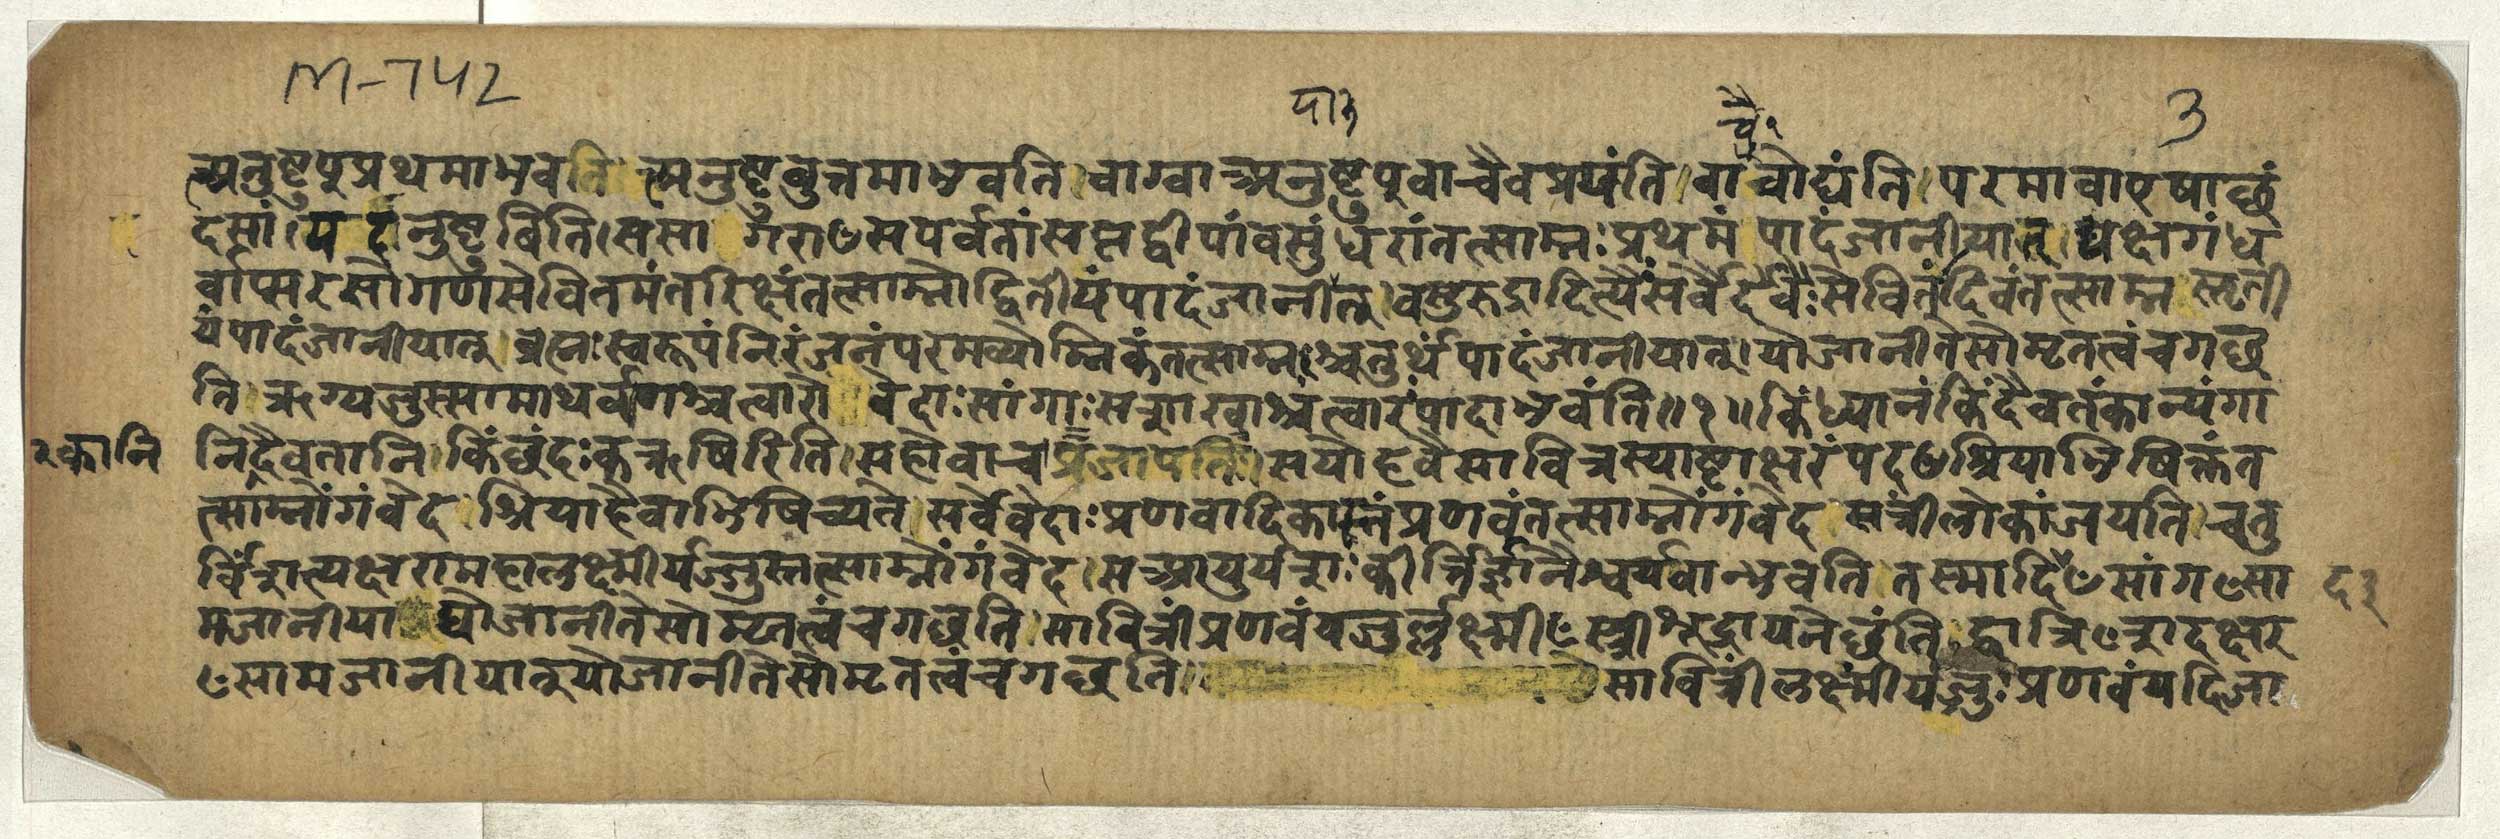 M-742
या३
३
अनुष्टुप्प्रथमाभवति।अनुष्टुबुत्तमाभवति।वाग्वाअनुष्टुप्वाचैवप्रयंति।वाचोद्यंति।परमावाएषाछं
दसां।यदनुष्टुबिति।ससागराꣳसपर्वतांसप्तद्वीपांवसुंधरांतत्साम्नःप्रथमंपादंजानीयात्।यक्षगंध
र्वाप्सरसोगणसेवितमंतरिक्षंतत्साम्नोद्वितीयंपादंजानीत्।वसुरुद्रादित्यैःसर्वैर्देवैःसेवितंदिवंतत्साम्नस्तृती
यंपादंजानीयात्।ब्रह्मःस्वरूपंनिरंजनंपरमव्योम्निकंतत्साम्नःश्चतुर्थंपादंजानीयात्।योजानीतेसोमृतत्वंचगछ
ति।ऋग्यजुस्सामाथर्वाणश्चत्वारोवेदाःसांगाःसशाखाश्चत्वारंपादाभवंति॥१॥किंध्यानंकिंदैवतंकान्यंगा
२कानि
निदैवतानि।किंछंदःकऋषिरिति।सहोवाचप्रजापतिः।सयोहवैसावित्रस्याष्टाक्षरंपदꣳश्रियाभिषिक्तंत
त्साम्नोंगंवेद।श्रियाहैवाभिषिच्यते।सर्वेवेदाःप्रणवादिकास्तंप्रणवंतत्साम्नोंगंवेद।सत्रीलोकांजयति।चतु
र्विंशत्यक्षरामहालक्ष्मीर्यजुस्तत्साम्नोंगंवेद।सआयुर्यशःकीर्त्तिर्ज्ञानैश्वर्यवान्भवति।तस्मादिꣳसांगꣳसा
द२
मजानीयाद्योजानीतेसोमृतत्वंचगछति।सावित्रींप्रणवंयजुर्लक्ष्मीꣳस्त्रीशूद्रायनेछंति।द्वात्रिꣳशदक्षर
ꣳसामजानीयात्योजानीतेसोमृतत्वंचगछति।सावित्रींलक्ष्मींयजुःप्रणवंयदिजा